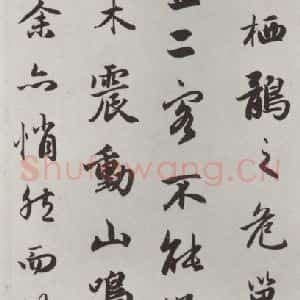 栖鶻之危巢
二客不能
木震動山鳴
余亦悄然而
Shufawang.CN